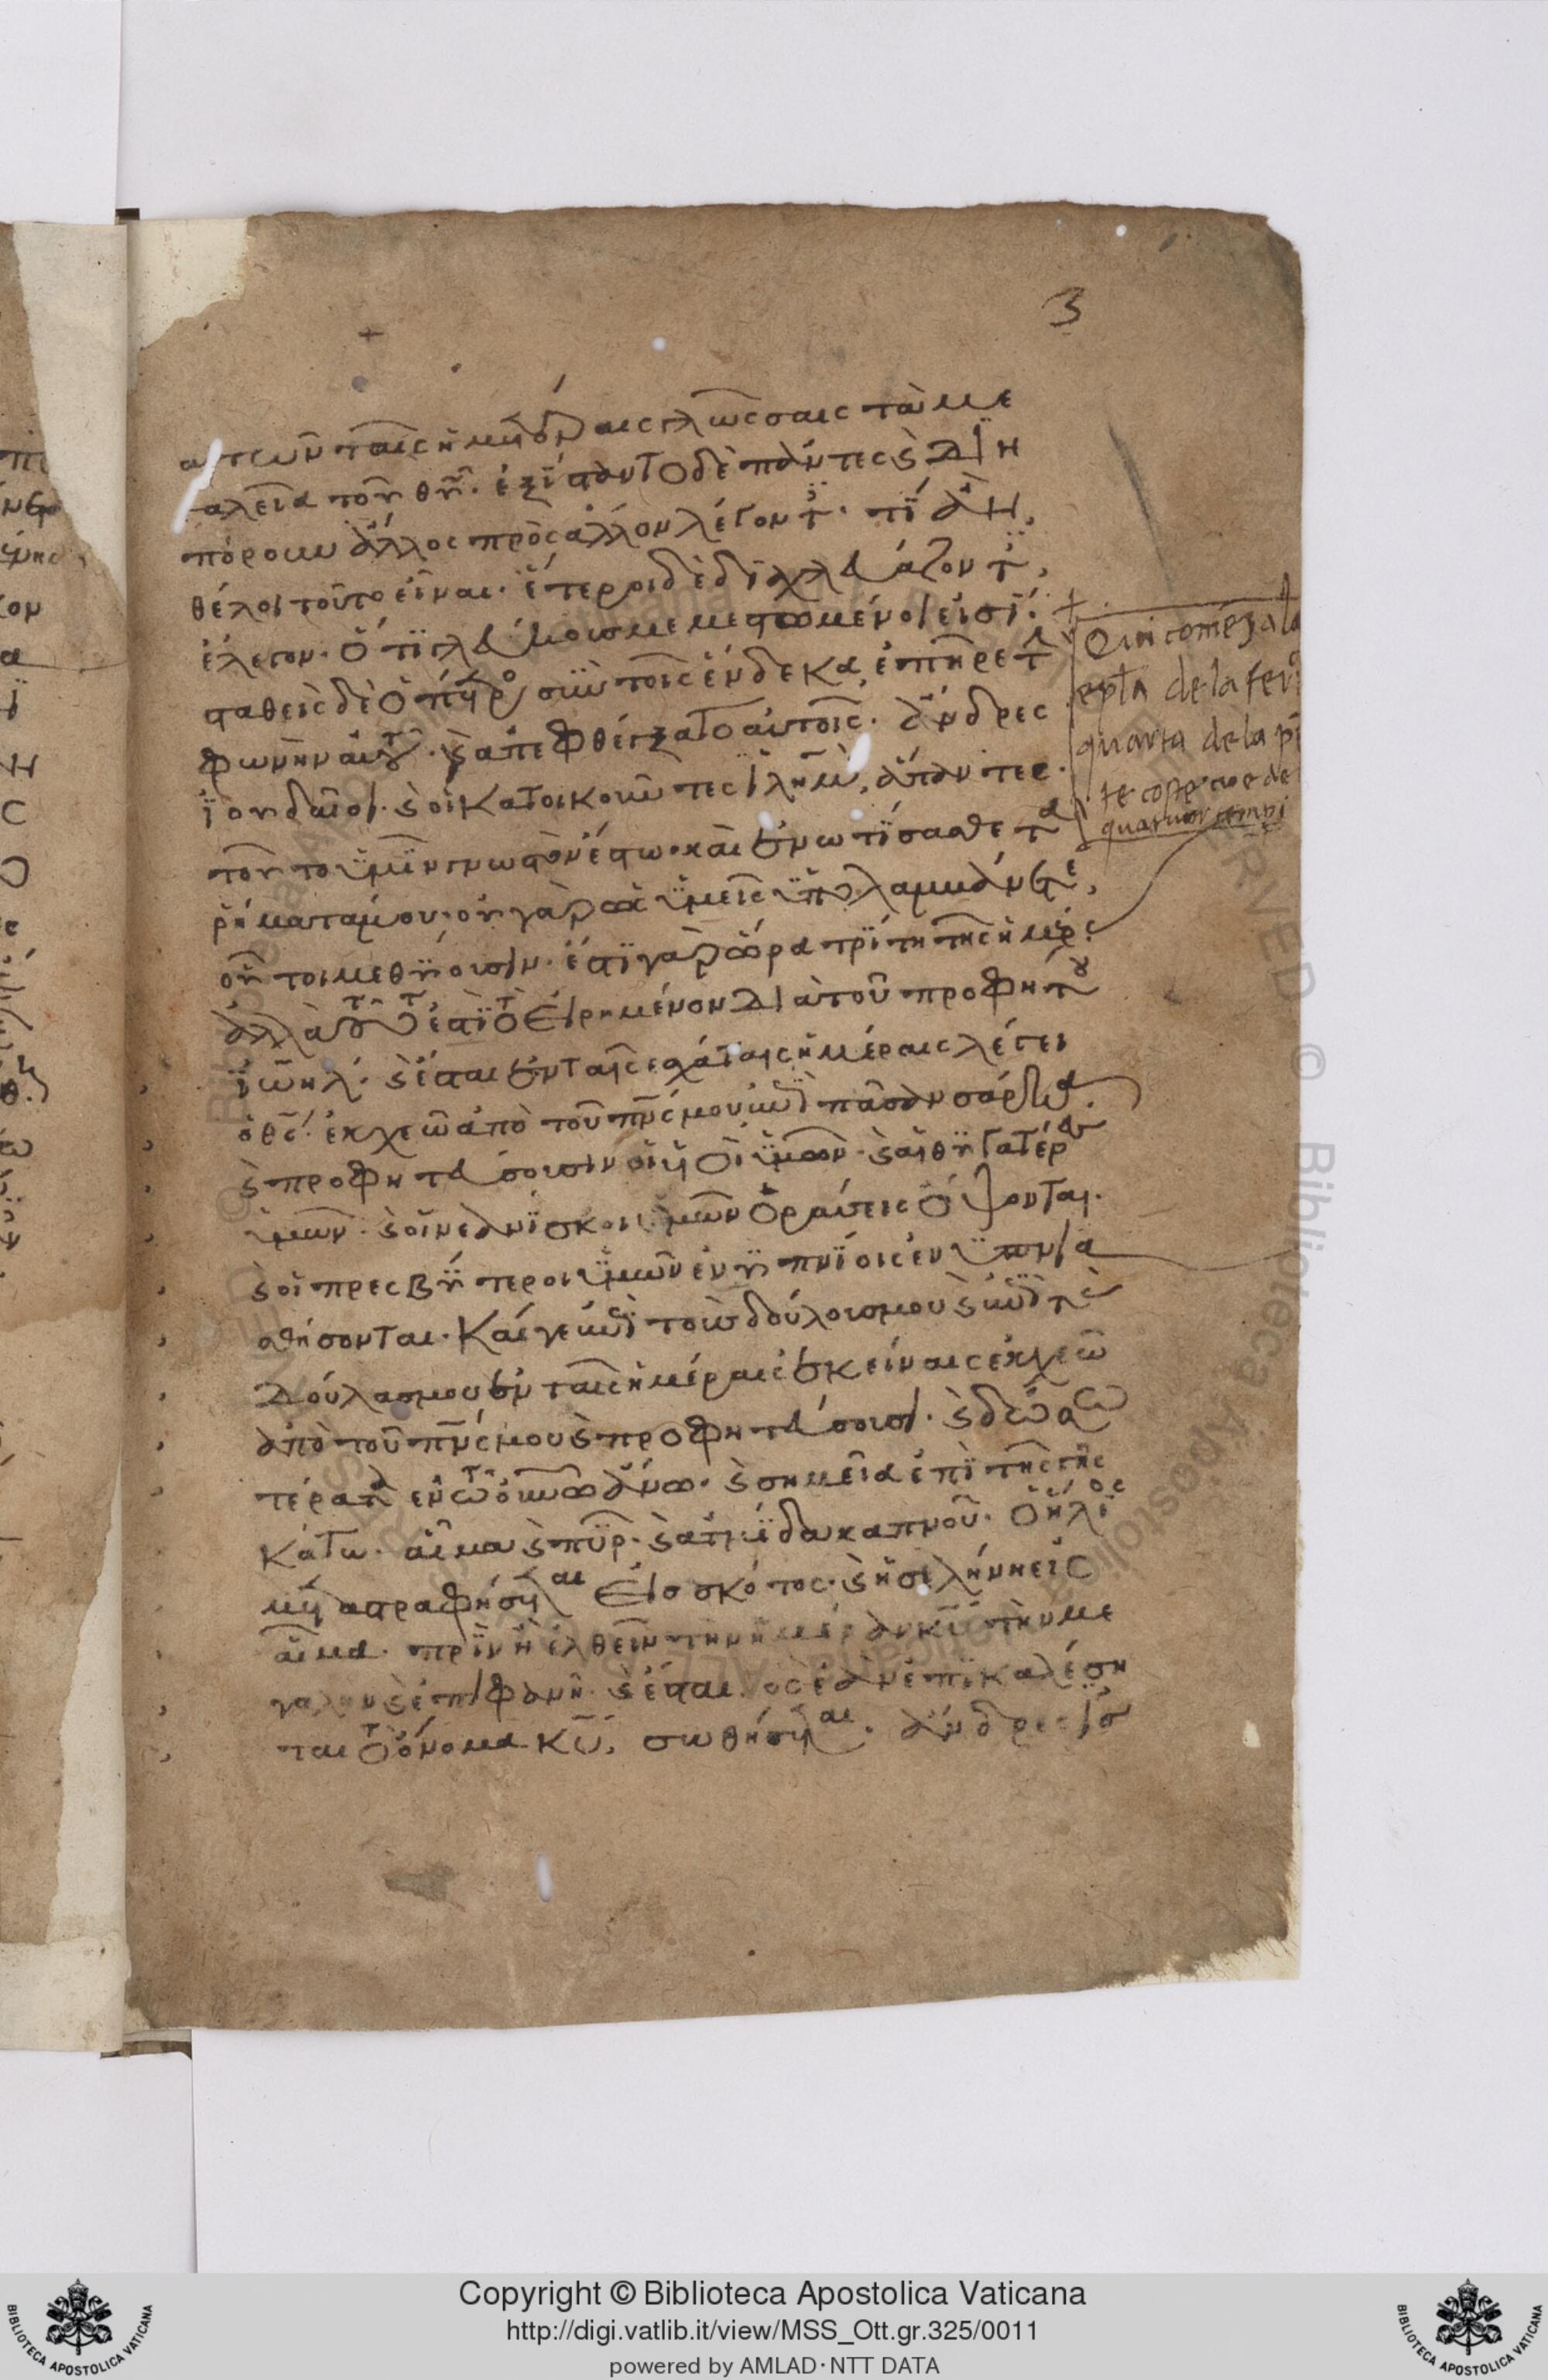 3
αυτῶν ταῖς ἡμετέραις γλώσσαις τὰ με
γαλεῖα τοῦ θῦ. ἐξίσταντο δὲ πάντες ϗ διη
πόρουν ἄλλος πρὸς ἄλλον λέγοντ. τί ἂν,
θέλοι τοῦτο εἶναι. ἕτεροι δὲ διαχλευάζοντ,
ἔλεγον. ὅτι γλεύκους μεμεστωμένοι εἰσί.
σταθεὶς δὲ ὁ πέτρο σὺν τοῖς ἕνδεκα, ἐπῆρε τ
φωνὴν αὐτοῦ. ϗ ἀπεφθέγξατο αὐτοῖς. ἄνδρες
ἰουδαῖοι. ϗ οἱ κατοικοῦντες ἱλημ, ἅπαντες.
τοῦτο ὑμῖν γνωστὸν ἔστω. καὶ ἐνωτίσασθε τα
ῥήματά μου. οὐ γὰρ ὡς ὑμεῖς ὑπολαμβάνετε,
οὗτοι μεθύουσιν. ἔστι γὰρ ὥρα τρίτη τῆς ἡμέρς
ἀλλὰ τοῦτό ἐστι τὸ εἰρημένον διὰ τοῦ προφήτου
ἰωήλ. ϗ ἔσται ἐν ταῖς ἐσχάταις ἡμέραις λέγει
ὁ θς. ἐκχεῶ ἀπὸ τοῦ πνς μου ἐπὶ πᾶσαν σάρκα.
ϗ προφητεύσουσιν οἱ υἱοὶ ὑμῶν. ϗ αἱ θυγατέρες
ὑμῶν. ϗ οἱ νεανίσκοι ὑμῶν ὁράσεις ὄψονται.
ϗ οἱ πρεσβύτεροι ὑμῶν ἐνύπνίοις ἐνυπνια
σθήσονται. Καί γε ἐπὶ τοὺς δούλους μου ϗ ἐπὶ τὰς
δούλας μου ἐν ταῖς ἡμέραις ἐκείναις ἐκχεῶ
ἀπὸ τοῦ πνς μου ϗ προφητεύσουσι. ϗ δώσω
τέρατα ἐν τῶ οὐνῶ ἄνω. ϗ σημεῖα ἐπὶ τῆς γῆς
κάτω. αἷμα ϗ πῦρ. ϗ ἀτμίδα καπνοῦ. ὁ ἥλιος
μεταστραφήσεται εἰς σκότος. ϗ ἡ σελήνη εἰς
αἷμα. πρὶν ἢ ἐλθεῖν τὴν ἡμέραν κυ τὴν με
γάλην ϗ ἐπιφανῆ. ϗ ἔσται ὃς ἐὰν ἐπικαλέση
ται τὸ ὄνομα κυ, σωθήσεται. ἄνδρες ἰσ
Qui coméza la
epla de la fer
quarta de la pi
quatuor tempi
Copyright © Biblioteca Apostolica Vaticana
http://digi.vatlib.it/view/MSS_Ott.gr.325/0011
powered by AMLAD·NTT DATA